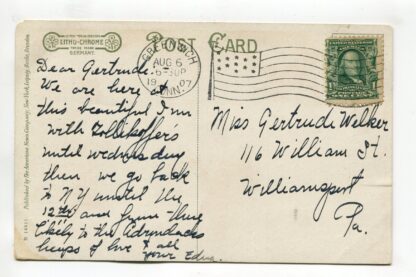 LITHO-CHROME
TRADE MARK
GERMANY
POST CARD
GREENWICH
AUG 6
5-30P
1907
CONN.
Dear Gertrude.
We are here at
this beautiful Inn
with Zollikoffers
until wednesday
then we go back
to N.Y until the
12th and from there
likely to the Adirondacks
heaps of love to all
your Edna.
Miss Gertrude Welker
116 William St.
Williamsport
Pa.
Published by The American News Company, New York, Leipzig, Berlin, Dresden